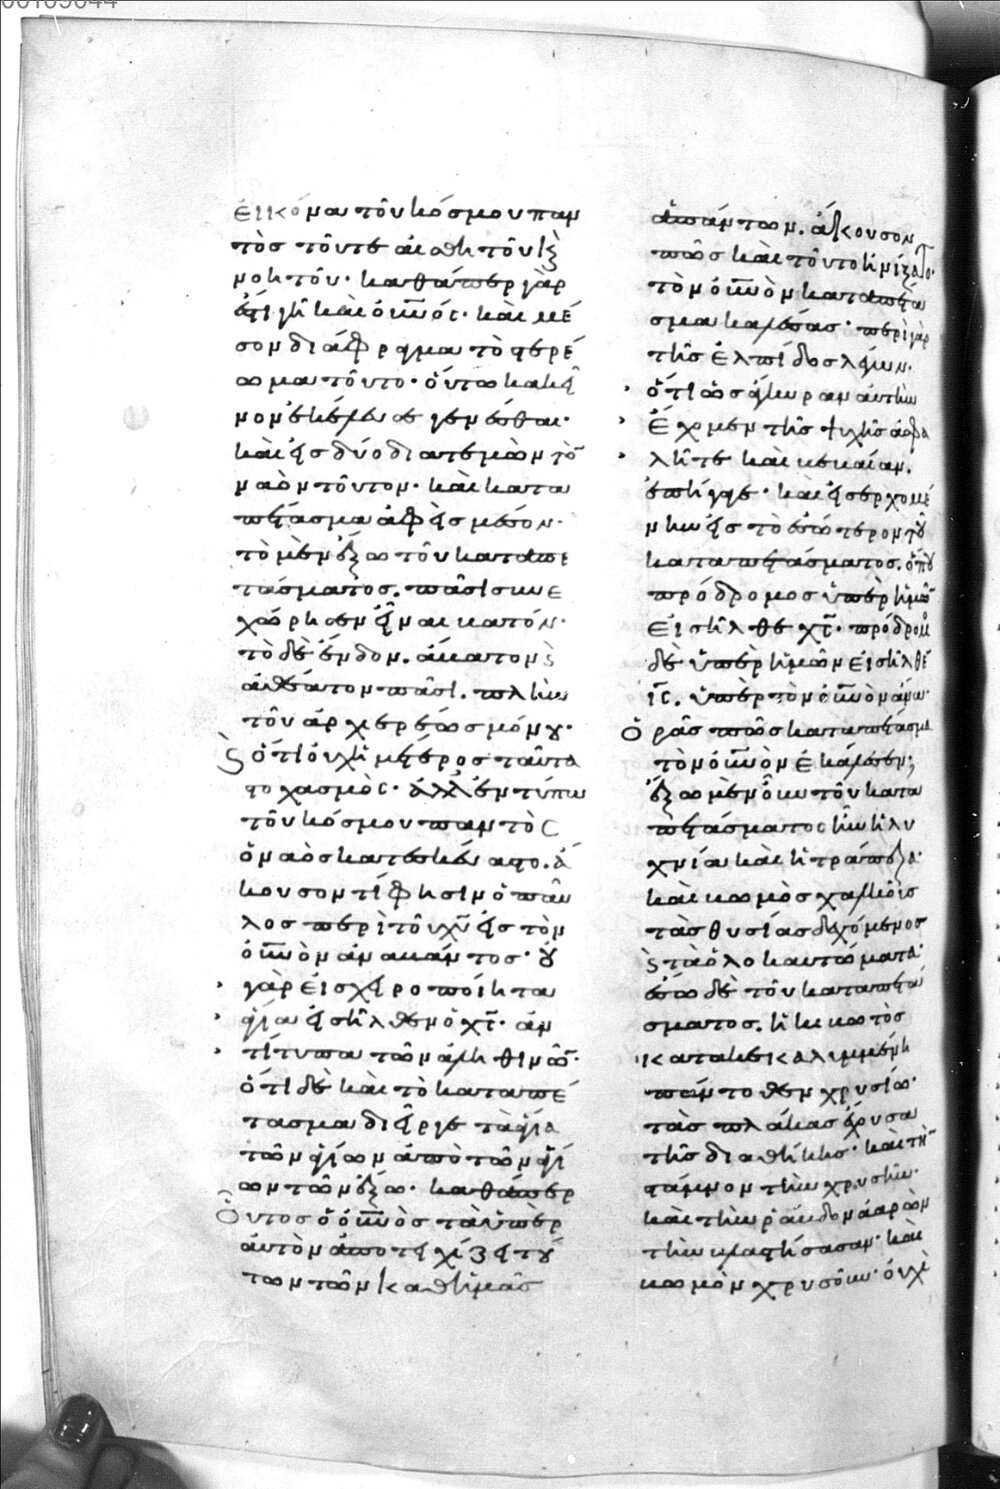 00109044
εἰκόνα τοῦ κόσμου παν
τὸς τοῦτε αἰσθητοῦ κ(αὶ)
νοητοῦ· καθάπερ γὰρ
ἐστι γῆ καὶ οὐνός· καὶ μέ
σον διάφραγμα τὸ στερέ
ωμα τοῦτο· οὕτω κἀκεῖ
νον ἐκέλευσε γενέσθαι·
καὶ εἰς δύο διατεμὼν τὸ
ναὸν τοῦτον· καὶ κατα
πέτασμα ἀφεὶς μέσον·
τὸ μὲν ἔξω τοῦ καταπε
τάσματος. πᾶσι συνε
χώρησεν εἶναι βατόν·
τὸ δὲ ἔνδον. ἄβατον κ(αὶ)
ἀθέατον πᾶσι. πλὴν
τοῦ ἀρχιερέως μόνου·
κ(αὶ) ὅτι οὐχ ἡμέτερος ταῦτα
στοχασμὸς· ἀλλ' ἐν τύπω
τοῦ κόσμου παντὸς
ὁ ναὸς κατεσκεύαστο. ἄ
κουσον τί φησιν ὁ παῦ
λος περὶ τοῦ χυ εἰς τὸν
οὐνὸν ἀναβάντος· οὐ
γὰρ εἰς χειροποίητα
ἅγια εἰσῆλθεν ὁ χς· ἀν
τίτυπα τῶν ἀληθινῶν·
ὅτι δὲ καὶ τὸ καταπέ
τασμα διεῖργε τὰ ἅγια
τῶν ἁγίων ἀπὸ τῶν ἁγί
ων τῶν ἔξω· καθάπερ
οὗτος ὁ οὐνὸς τὰ ὑπὲρ
αὐτὸν ἀποτειχίζει τού
των τῶν καθ' ἡμᾶς
ἁπάντων. ἄκουσον
πῶς καὶ τοῦτο ἠνίξατο·
τὸν οὐνὸν καταπέτα
σμα καλέσας· περὶ γὰρ
τῆς ἐλπίδος λέγων·
ὅτι ὡς ἄγκυραν αὐτὴν
ἔχομεν τῆς ψυχῆς ἀσφα
λῆ τε καὶ βεβαίαν.
ἐπήγαγε· καὶ εἰσερχομέ
νην εἰς τὸ ἐσώτερον τοῦ
καταπετάσματος. ὅπου
πρόδρομος ὑπὲρ ἡμῶν
εἰσῆλθε χς· πρόδρομον
δὲ ὑπὲρ ἡμῶν εἰσῆλθε
ις. ὑπὲρ τὸν οὐνὸν ἄνω·
ὁρᾶς πῶς καταπέτασμα
τὸν οὐνὸν ἐκάλεσεν;
ἔξω μὲν οὖν τοῦ κατα
πετάσματος ἦν ἡ λυ
χνία καὶ ἡ τράπεζα·
καὶ βωμὸς χαλκοῦς
τὰς θυσίας δεχόμενος
κ(αὶ) τὰ ὁλοκαυτώματα·
ἔσω δὲ τοῦ καταπετά
σματος. ἡ κιβωτὸς
κατακεκαλυμμένη
πάντοθεν χρυσίω·
τὰς πλάκας ἔχουσα
τῆς διαθήκης· καὶ τὴν
στάμνον τὴν χρυσῆν·
καὶ τὴν ῥάβδον ἀαρὼν
τὴν βλαστήσασαν· καὶ
βωμὸν χρυσοῦν· οὐχὶ